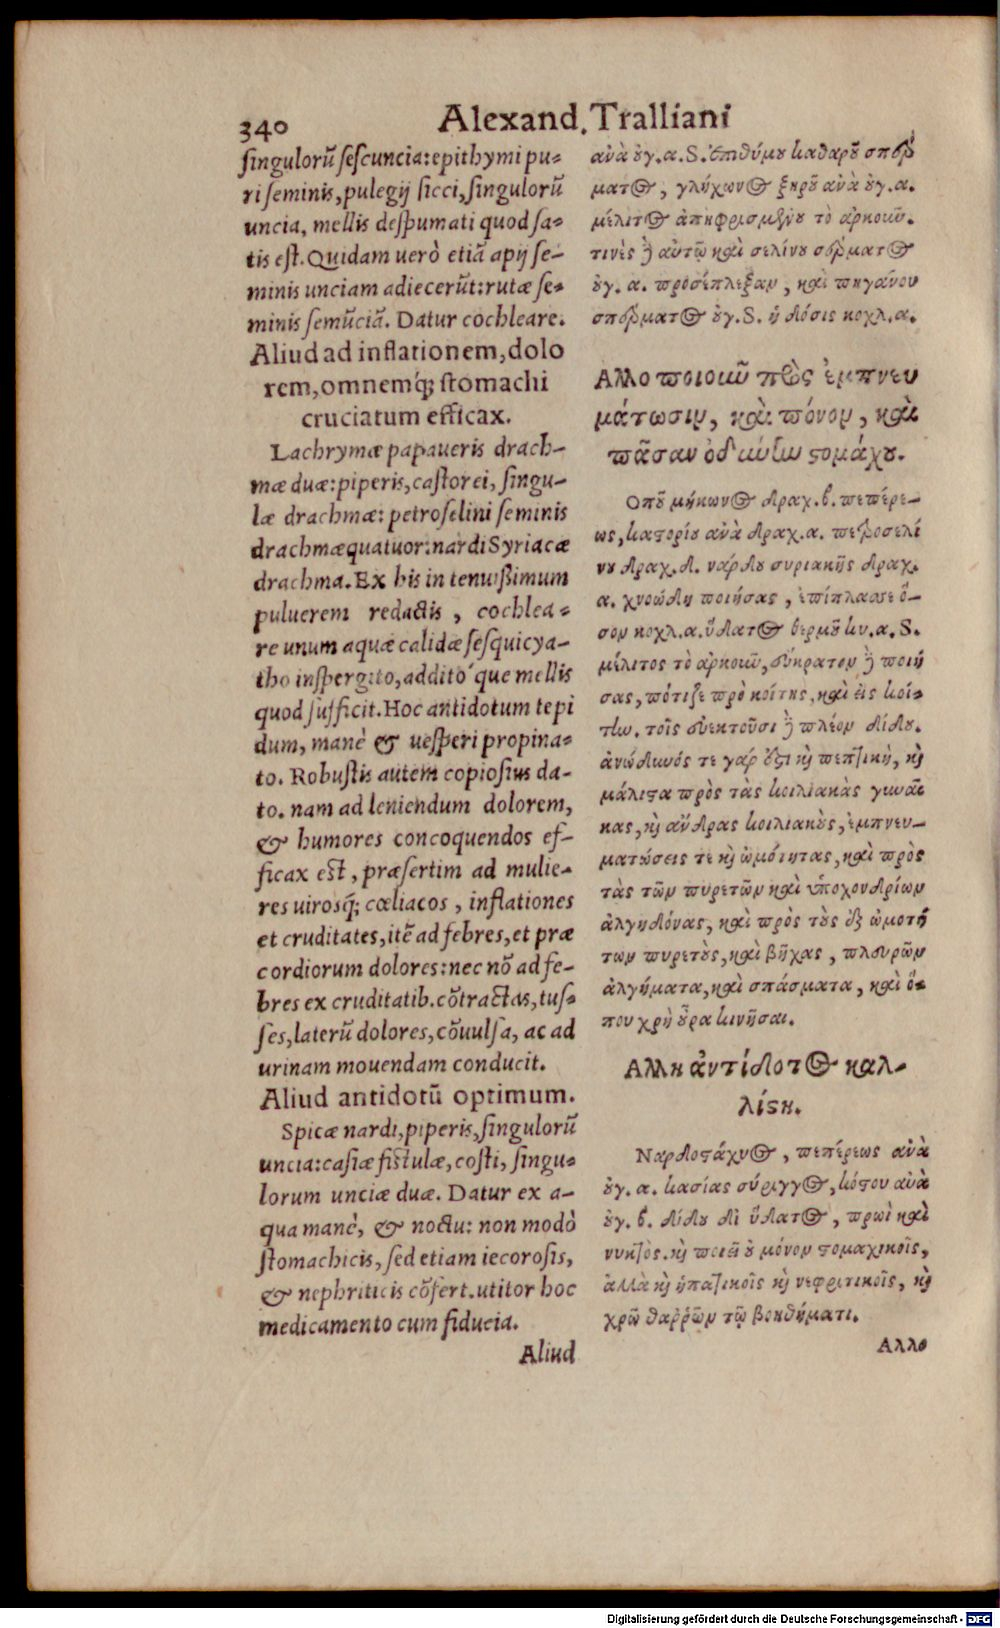 340
Alexand. Tralliani
singulorũ sescuncia: epithymi pu-
ri seminis, pulegij sicci, singulorũ
uncia, mellis despumati quod sa-
tis est. Quidam uerò etiã apij se-
minis unciam adiecerũt: rutæ se-
minis semũciã. Datur cochleare.
Aliud ad inflationem, dolo
rem, omnemq́; stomachi
cruciatum efficax.
Lachrymæ papaueris drach-
mæ duæ: piperis, castorei, singu-
læ drachmæ: petroselini seminis
drachmæ quatuor: nardi Syriacæ
drachma. Ex his in tenuißimum
puluerem redactis, cochlea-
re unum aquæ calidæ sesquicya-
tho inspergito, addito´que mellis
quod sufficit. Hoc antidotum tepi
dum, manè & uesperi propina-
to. Robustis autem copiosius da-
to. nam ad leniendum dolorem,
& humores concoquendos ef-
ficax est, præsertim ad mulie-
res uirosq́; cœliacos, inflationes
et cruditates, itẽ ad febres, et præ
cordiorum dolores: nec nõ ad fe-
bres ex cruditatib. cõtractas, tus-
ses, laterũ dolores, cõuulsa, ac ad
urinam mouendam conducit.
Aliud antidotũ optimum.
Spicæ nardi, piperis, singulorũ
uncia: casiæ fistulæ, costi, singu-
lorum unciæ duæ. Datur ex a-
qua manè, & noctu: non modò
stomachicis, sed etiam iecorosis,
& nephriticis cõfert. utitor hoc
medicamento cum fiducia.
Aliud
ἀνὰ ὀυγ. α. S. ἐπιθύμου καθαροῦ σπέρ
ματος, γλήχωνος ξηροῦ ἀνὰ ὀυγ. α.
μέλιτος ἀπηφρισμένου τὸ ἀρκοιῶ.
τινὲς ἢ αὐτῷ καὶ σελίνου σπέρματος
ὀυγ. α. προσέπλεξαν, καὶ πηγάνου
σπέρματος ὀυγ. S. ἡ δόσις κοχλ. α.
Αλλο ποιοιῶ πρὸς ἐμπνευ
μάτωσιν, καὶ πόνον, καὶ
πᾶσαν ὀδύνην στομάχου.
Οποῦ μήκωνος δραχ. β. πεπέρε-
ως, καστορίου ἀνὰ δραχ. α. πετροσελί
νου δραχ. δ. νάρδου συριακῆς δραχ.
α. χνοώδη ποιήσας, ἐπίπλασσε ὅ-
σον κοχλ. α. ὕδατος θερμοῦ κυ. α. S.
μέλιτος τὸ ἀρκοιῶ, εὔκρατον ἢ ποιή
σας, πότιζε πρὸ κοίτης, καὶ εἰς κοί-
την. τοῖς εὐεκτοῦσι ἢ πλέον δίδου.
ἀνώδυνός τε γάρ ἐστι καὶ πεπτικὴ, καὶ
μάλιστα πρὸς τὰς κοιλιακὰς γυναῖ
κας, καὶ ἄνδρας κοιλιακοὺς, ἐμπνευ-
ματώσεις τε καὶ ὠμότητας, καὶ πρὸς
τὰς τῶν πυρετῶν καὶ ὑποχονδρίων
ἀλγηδόνας, καὶ πρὸς τοὺς ἐξ ὠμοτή
των πυρετοὺς, καὶ βῆχας, πλευρῶν
ἀλγήματα, καὶ σπάσματα, καὶ ὅ-
που χρὴ οὖρα κινῆσαι.
Αλλη ἀντίδοτος καλ-
λίστη.
Ναρδοστάχυος, πεπέρεως ἀνὰ
ὀυγ. α. κασίας σύριγγος, κόστου ἀνὰ
ὀυγ. β. δίδου δὶ ὕδατος, πρωὶ καὶ
νυκτὸς. καὶ ποιεῖ οὐ μόνον στομαχικοῖς,
ἀλλὰ καὶ ἡπατικοῖς καὶ νεφριτικοῖς, καὶ
χρῶ θαῤῥῶν τῷ βοηθήματι.
Αλλο
Digitalisierung gefördert durch die Deutsche Forschungsgemeinschaft - DFG